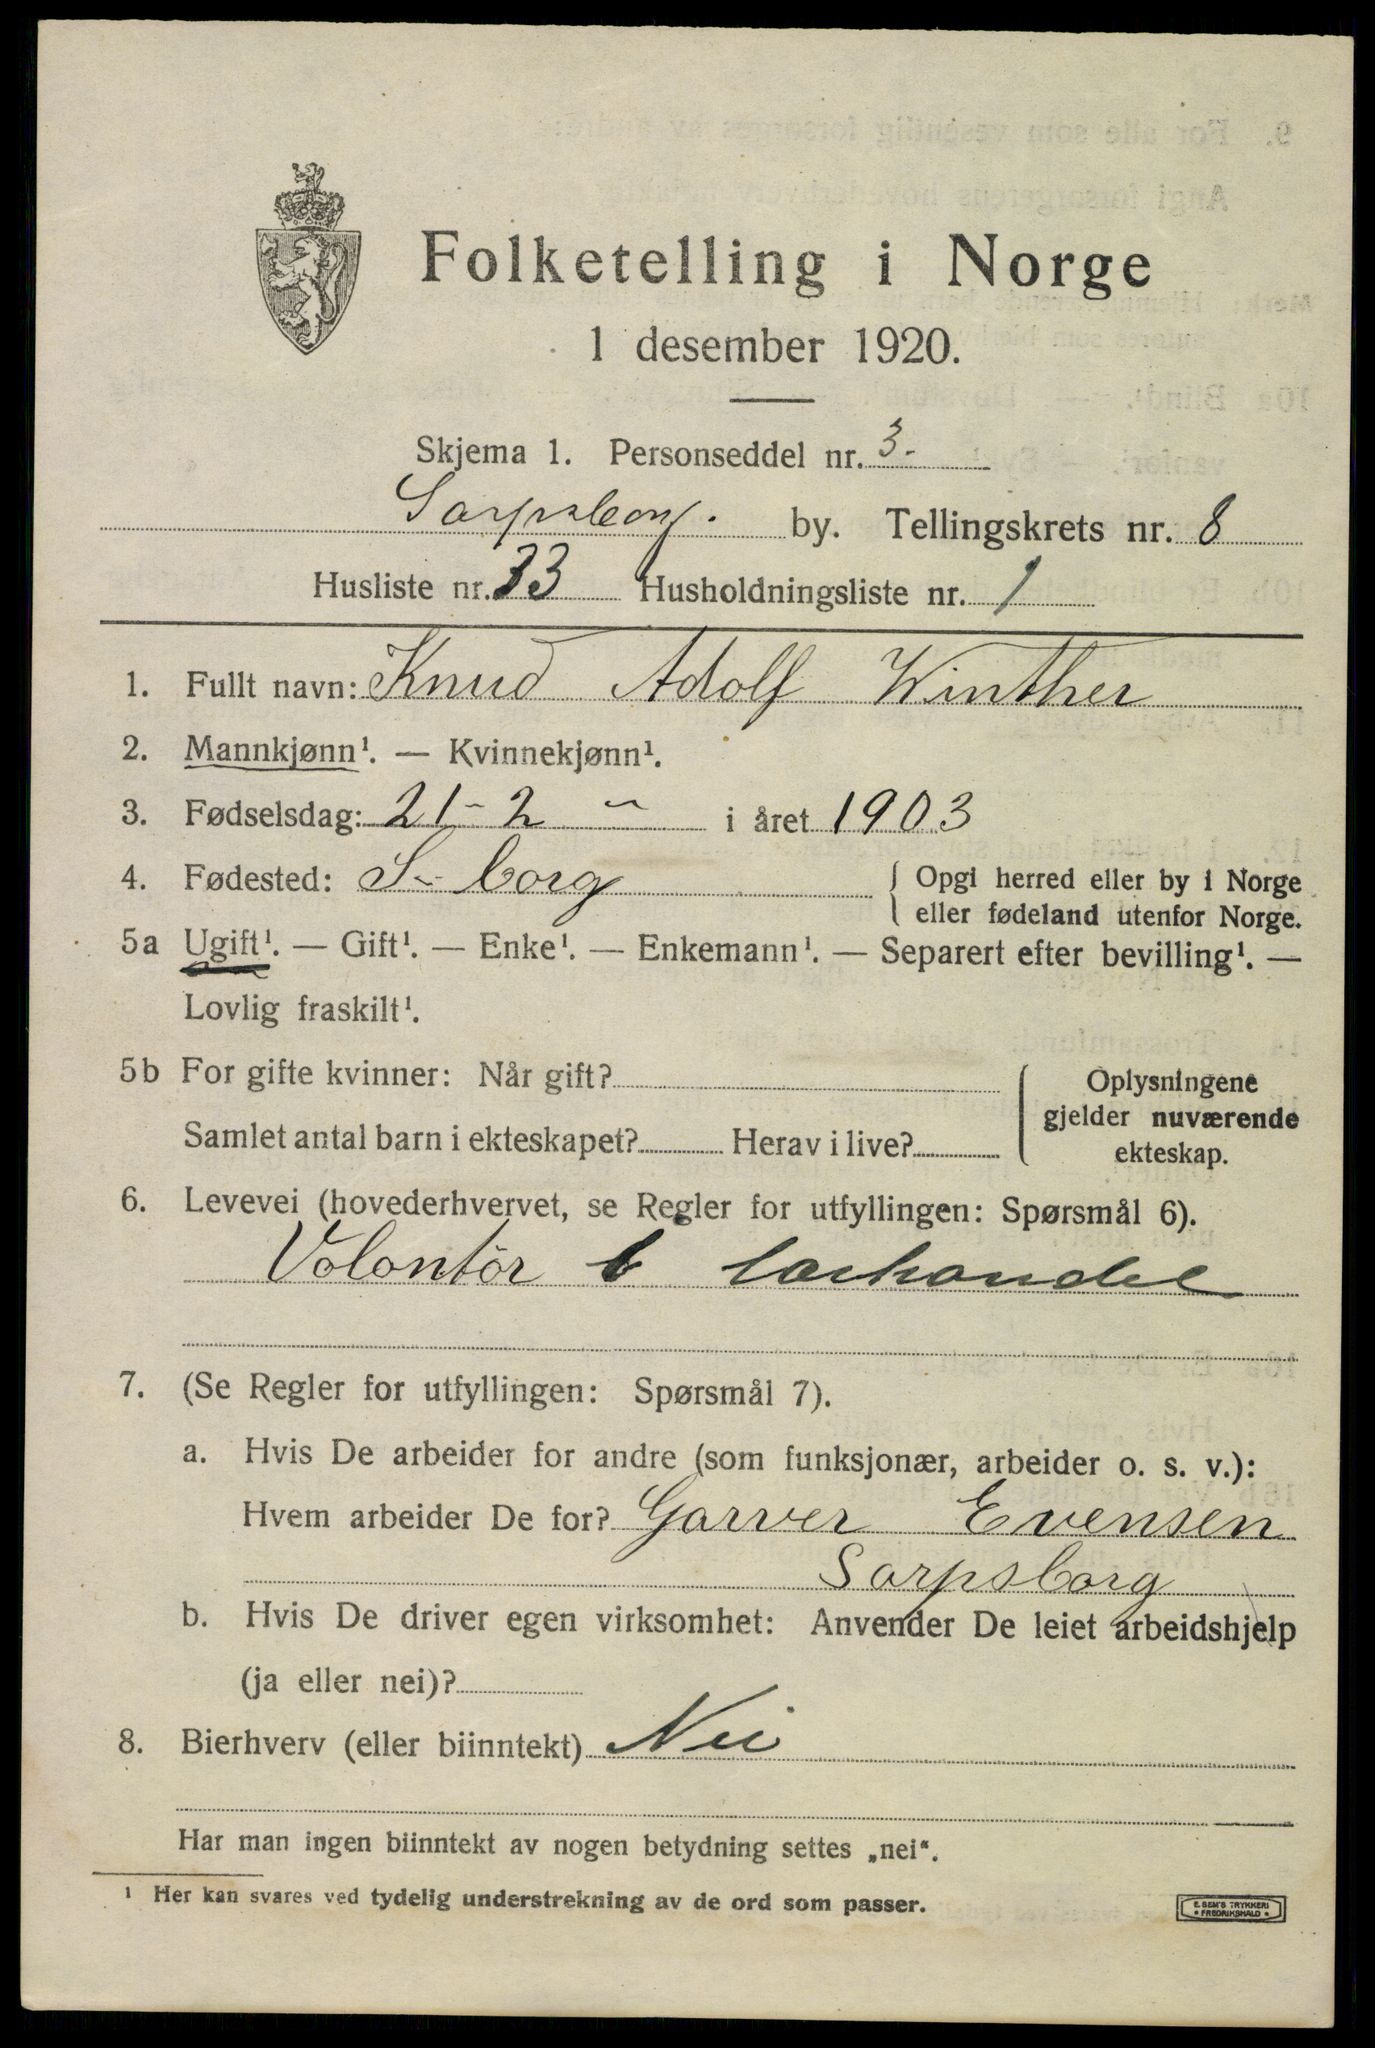 Folketelling i Norge
1 desember 1920.
Skjema 1. Personseddel nr. 3.
Sarpsborg. by. Tellingskrets nr. 8
Husliste nr. 33 Husholdningsliste nr. 1
1. Fullt navn: Knud Adolf Winther
2. Mannkjønn¹. — Kvinnekjønn¹.
3. Fødselsdag: 21-2 - i året 1903
4. Fødested: S-borg { Opgi herred eller by i Norge
eller fødeland utenfor Norge.
5a Ugift¹. — Gift¹. — Enke¹. — Enkemann¹. — Separert efter bevilling¹. —
Lovlig fraskilt¹.
5b For gifte kvinner: Når gift?
Samlet antal barn i ekteskapet? Herav i live?
{ Oplysningene
gjelder nuværende
ekteskap.
6. Levevei (hovederhvervet, se Regler for utfyllingen: Spørsmål 6).
Volontør lærhandel
7. (Se Regler for utfyllingen: Spørsmål 7).
a. Hvis De arbeider for andre (som funksjonær, arbeider o. s. v.):
Hvem arbeider De for? Garver Evensen
Sarpsborg
b. Hvis De driver egen virksomhet: Anvender De leiet arbeidshjelp
(ja eller nei)?
8. Bierhverv (eller biinntekt) Nei
Har man ingen biinntekt av nogen betydning settes „nei“.
¹ Her kan svares ved tydelig understrekning av de ord som passer.
E. SEM'S TRYKKERI
• FREDRIKSHALD •